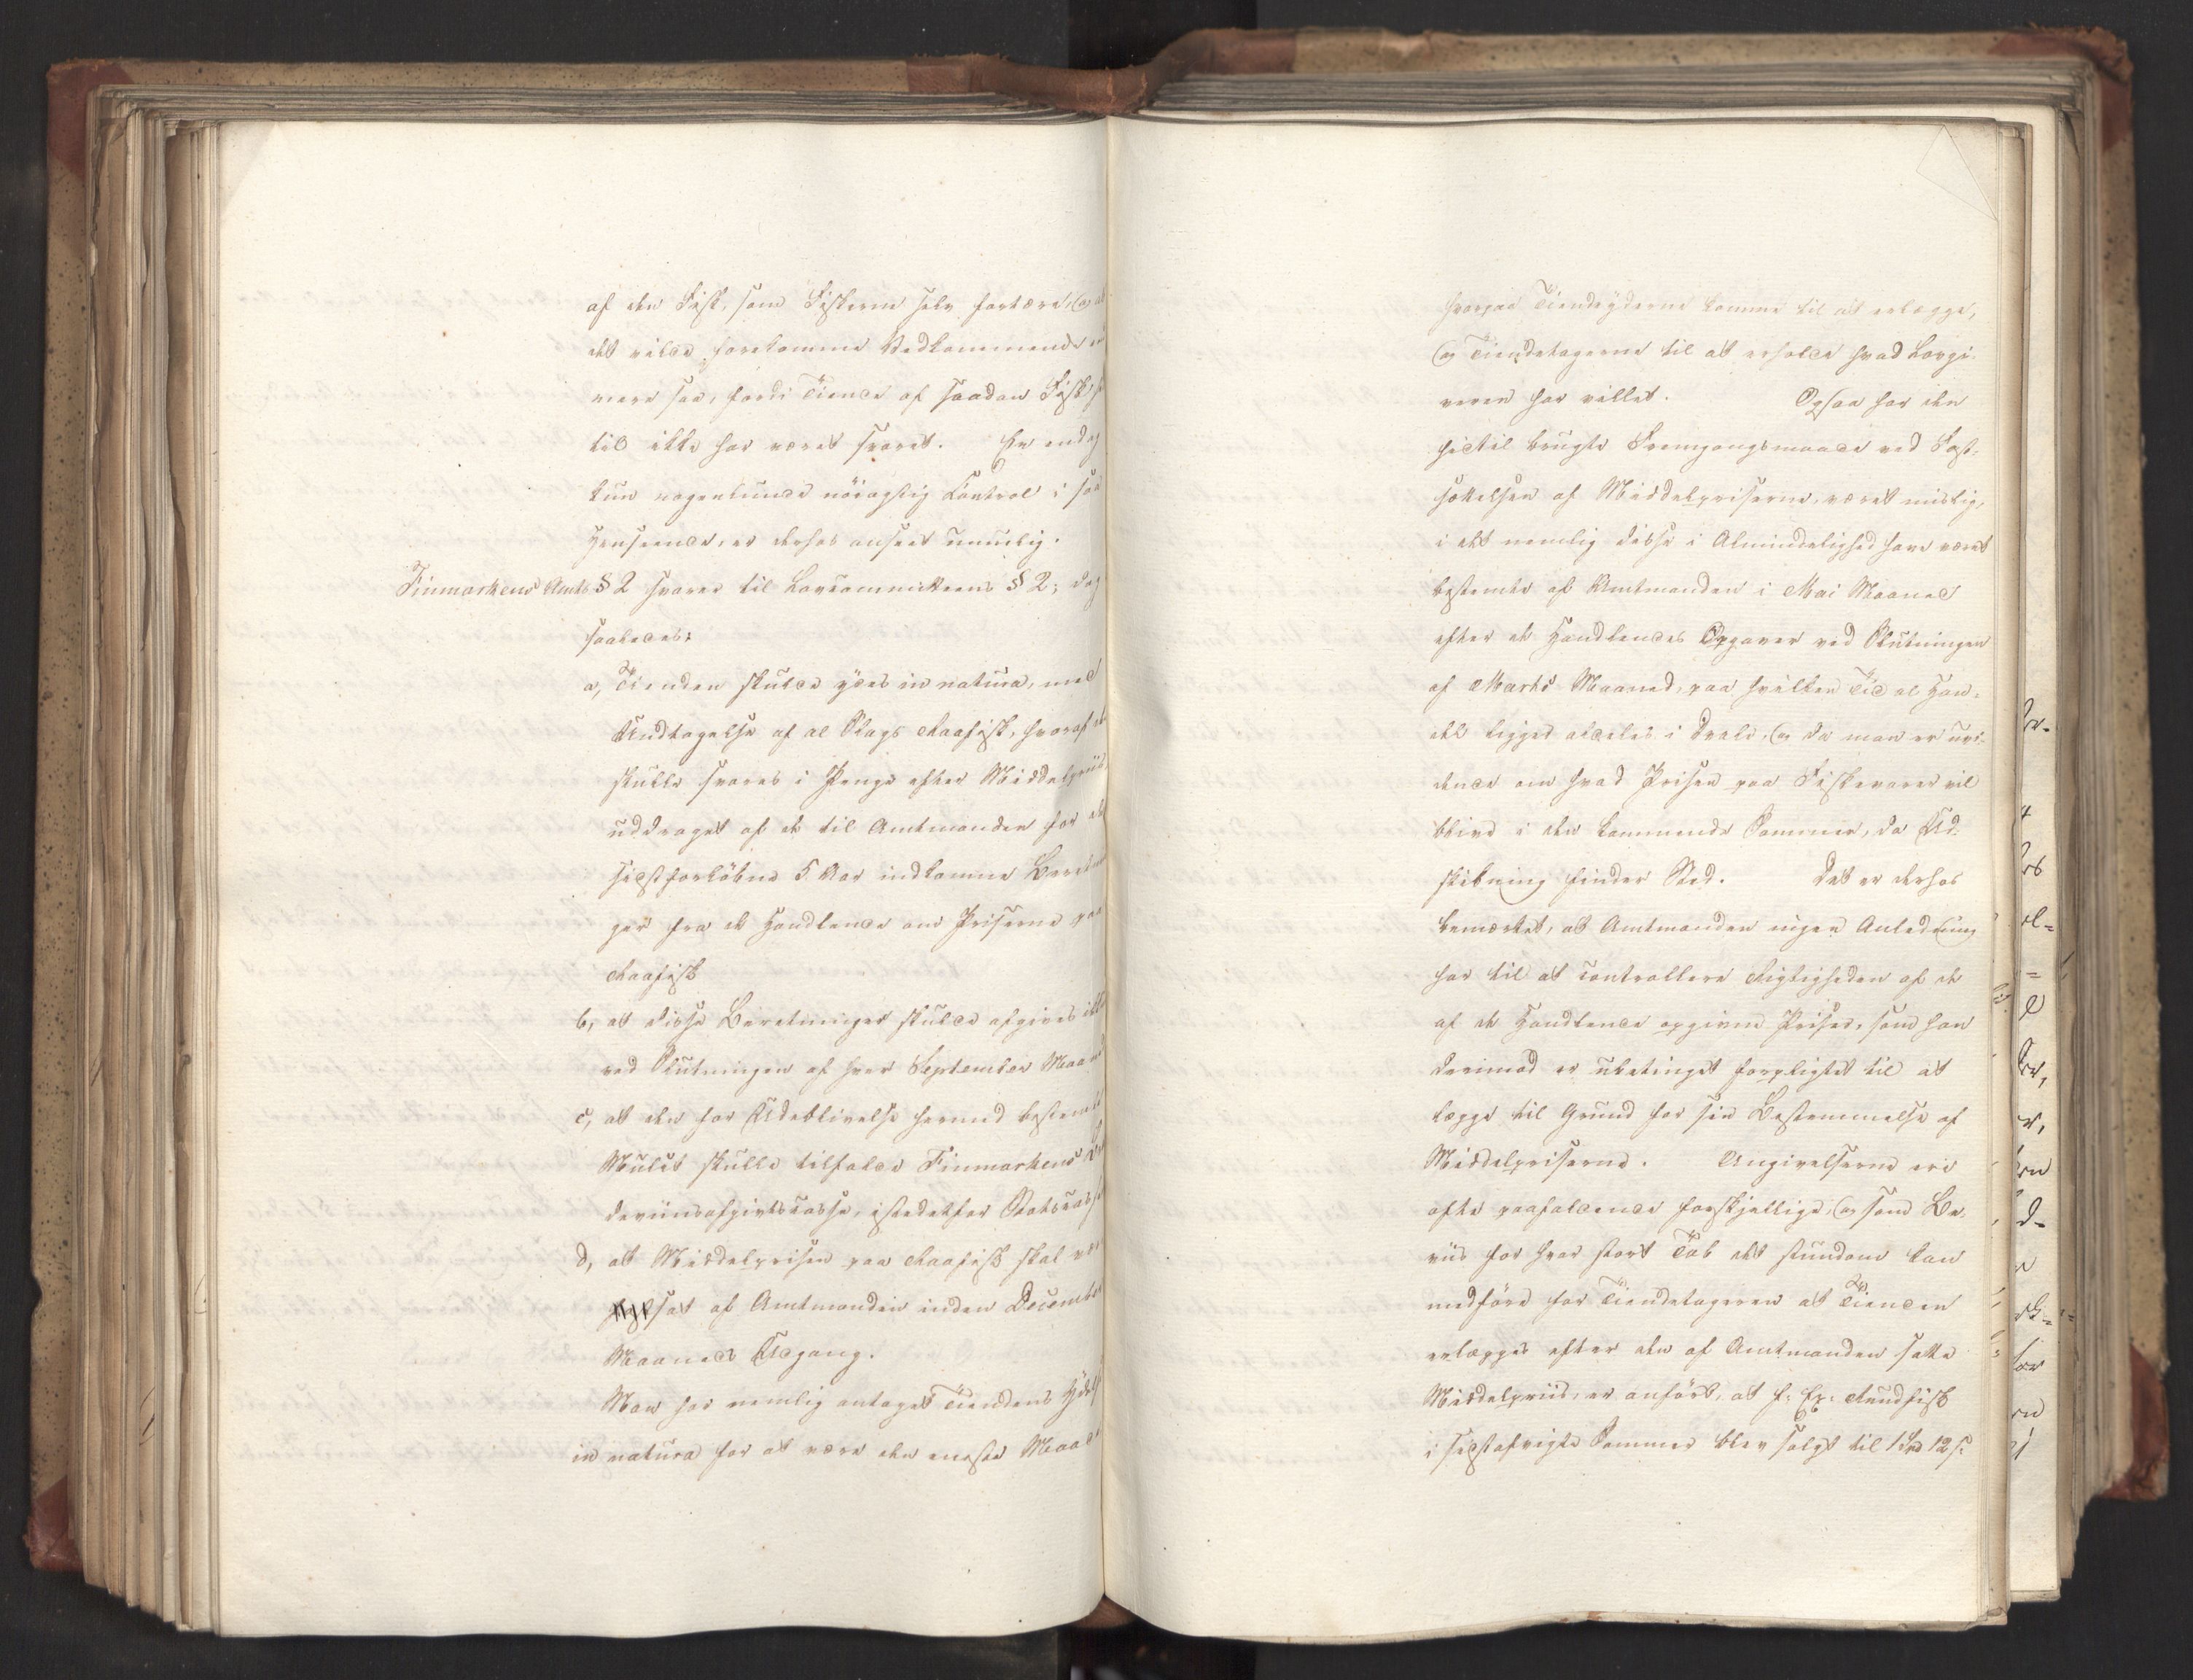 af den Fisk, som Fiskerne selv fortære, og at
det vilde forekomme Vedkommende
mere saa, fordi Tiende af saadan Fisk
til ikke har været svaret. En endog
kun nogenlunde nöiagtig Control i saa
Henseende, er derhos anseet umulig.
Finmarkens Amts § 2 svarer til Lovcommitteens § 2; dog
saaledes:
a, Tienden skulde ydes in natura, med
Undtagelse af al Slags Raafisk, hvoraf
skulle svares i Penge efter Middelpriis
uddraget af de til Amtmanden for de
sidstforløbne 5 Aar indkomne Beretnin
ger fra de Handlende om Priserne paa
Raafisk
b, at disse Beretninger skulde afgives
ved Slutningen af hver September Maaned
c, at den for Udeblivelse hermed bestemte
Mulct skulle tilfalde Finmarkens
deviinsafgivtscasse, istedetfor Statscassen
d, at Middelprisen paa Raafisk skal være
sat af Amtmanden inden December
Maaneds Udgang.
Man har nemlig antaget Tiendens Ydelse
in natura for at være den eneste Maade
hvorpaa Tiendeyderne komme til at erlægge,
og Tiendetagerne til at erholde hvad Lovgi-
veren har villet. Ogsaa har den
hidtil brugte Fremgangsmaade ved Fast-
sættelsen af Middelpriserne, været mislig,
i det nemlig disse i Almindelighed have været
bestemte af Amtmanden i Mai Maaned
efter de Handlendes Opgaver ved Slutningen
af Marts Maaned, paa hvilken Tid al Han-
del ligger aldeles i Dvale, og da man er uvi-
dende om hvad Prisen paa Fiskevarer vil
blive i den kommende Sommer, da Ud-
skibning finder Sted. Det er derhos
bemærket, at Amtmanden ingen Anledning
har til at controllere Rigtigheden af de
af de Handlende opgivne Priser, som han
derimod er ubetinget forpligtet til at
lægge til Grund for sin Bestemmelse af
Middelpriserne. Angivelserne ere
ofte paafaldende forskjellige, og som Be-
viis for hvor stort Tab det stundom kan
medføre for Tiendetageren at Tienden
erlægges efter den af Amtmanden satte
Middelpriis, er anført, at f. Ex. Rundfisk
i sidstafvigte Sommer blev solgt til 1 Spd 12 s.